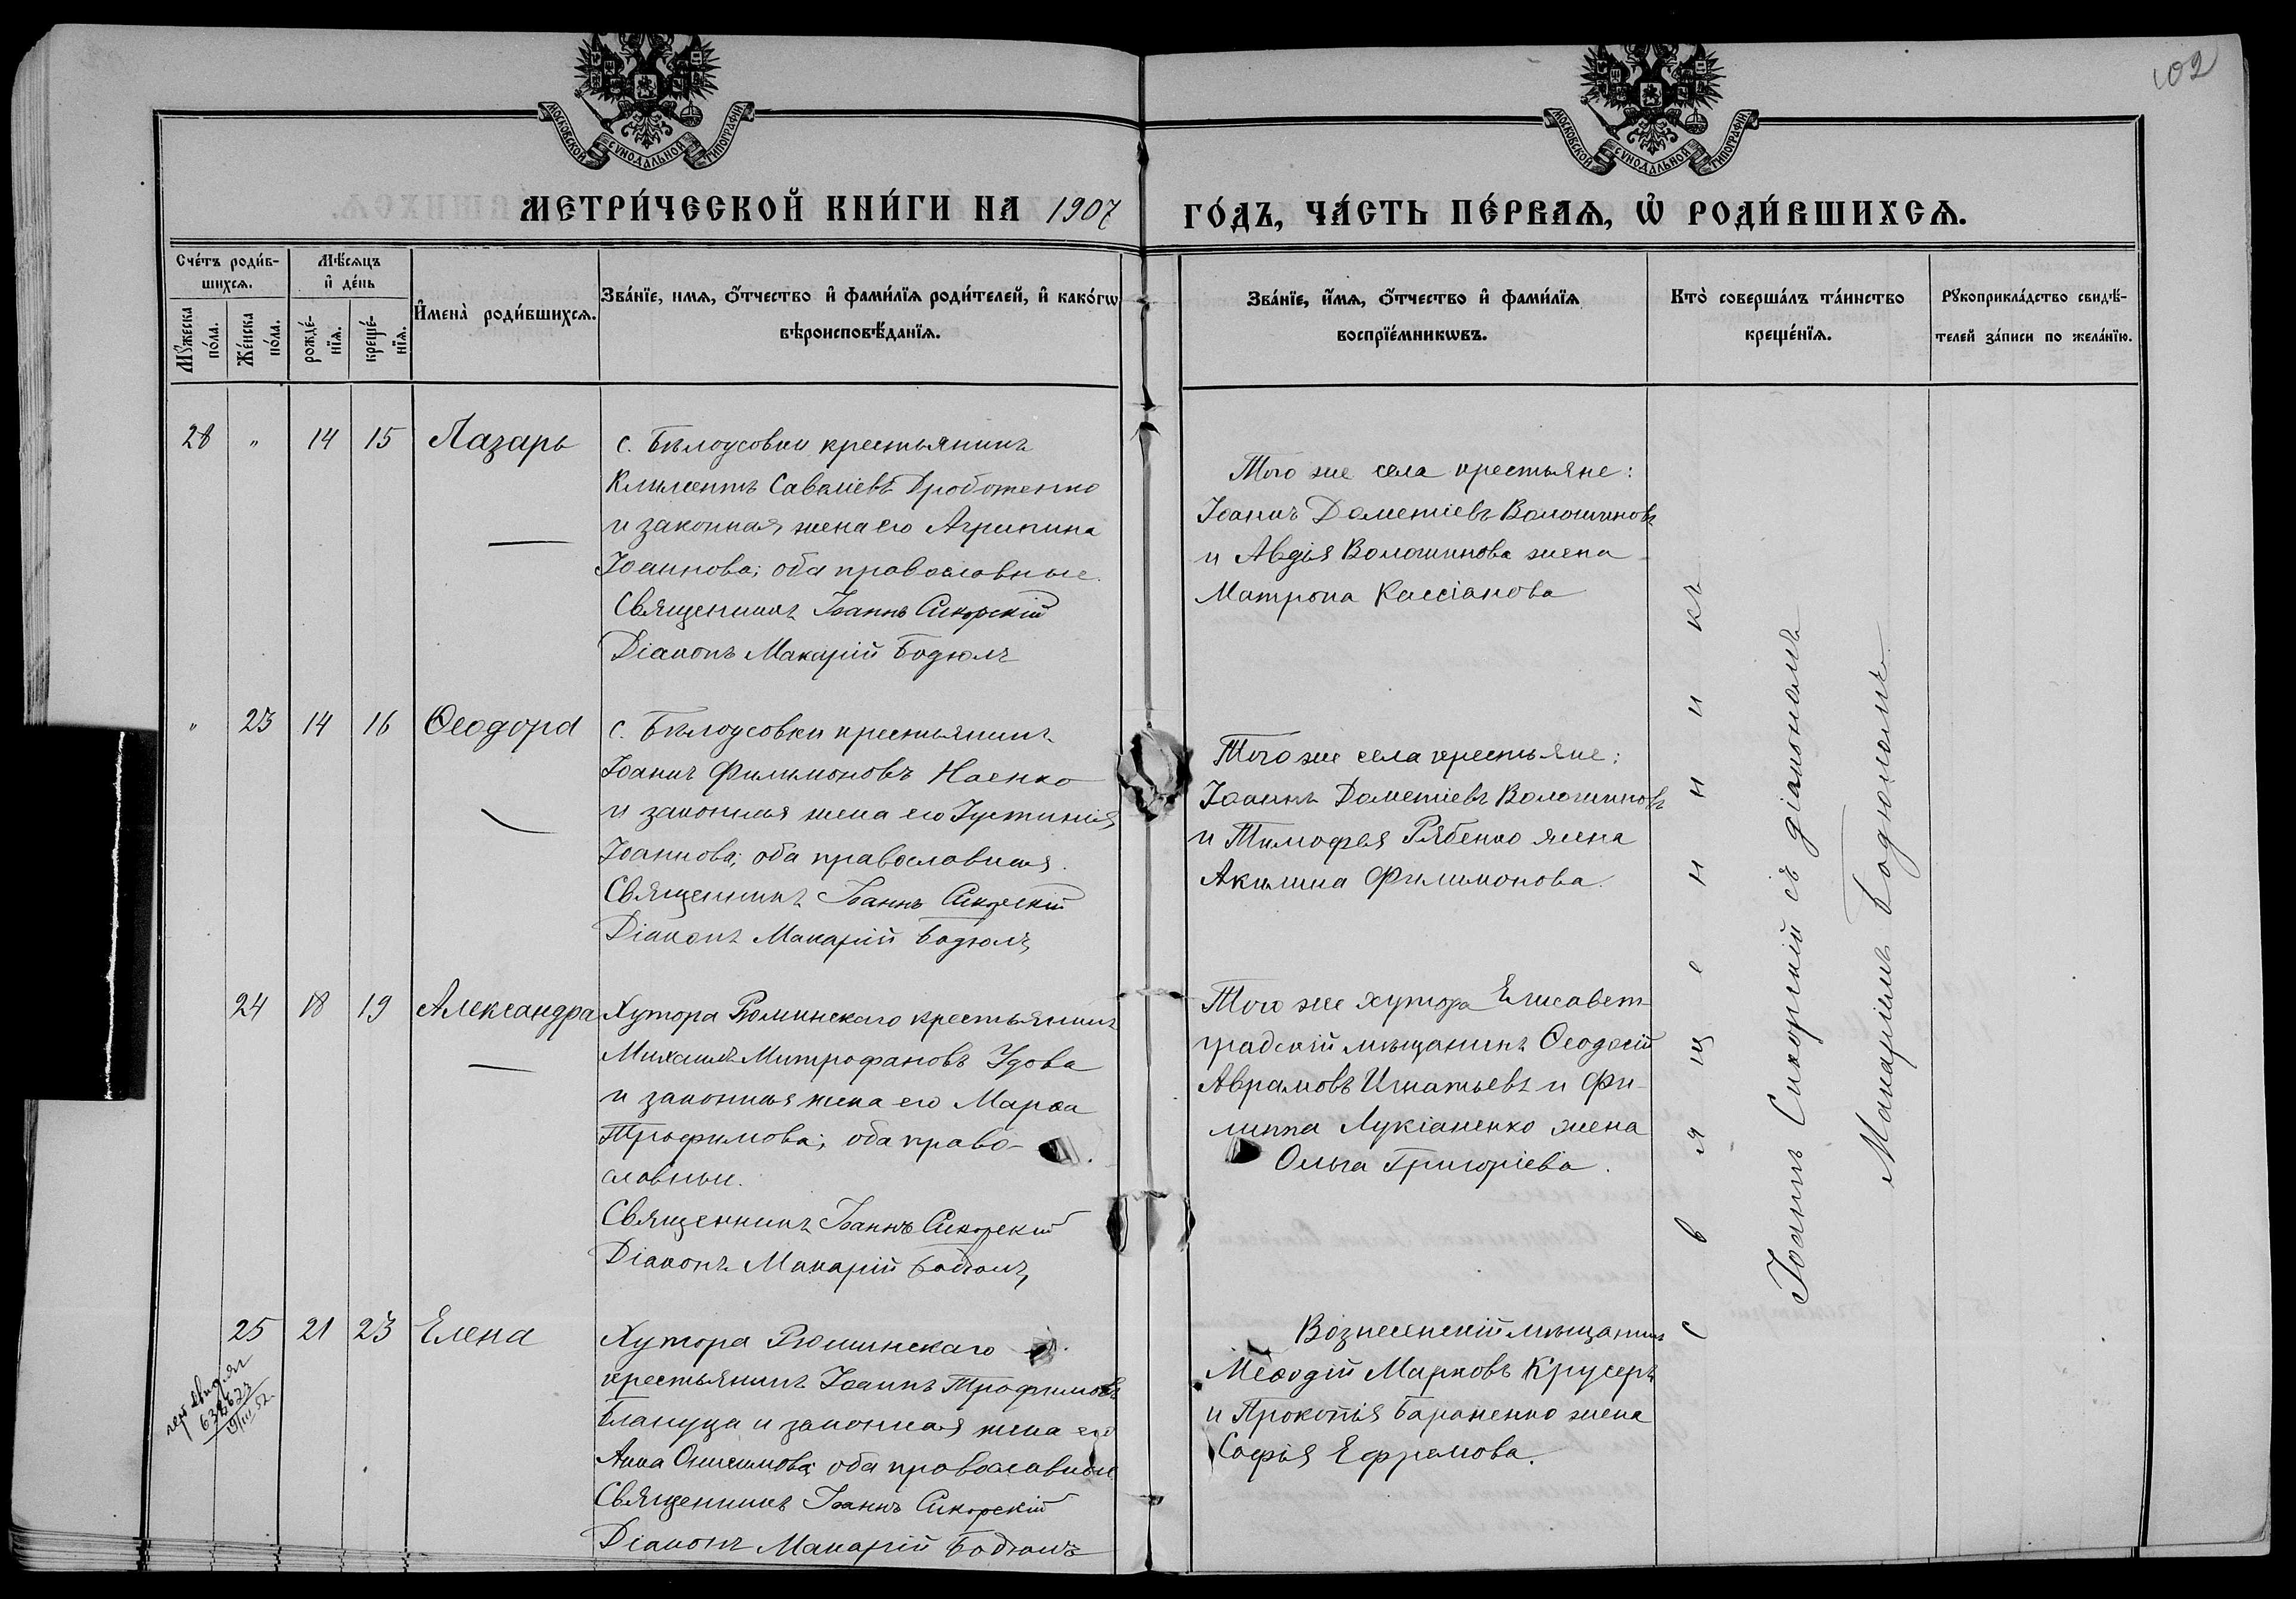 102
МОСКОВСКОЙ СѴНОДАЛЬНОЙ ТИПОГРАФІИ
МОСКОВСКОЙ СѴНОДАЛЬНОЙ ТИПОГРАФІИ
МЕТРИ́ЧЕСКОЙ КНИ́ГИ НА 1907 ГО́ДЪ, ЧА́СТЬ ПЕ́РВАѦ, Ѡ҆ РОДИ́ВШИХСѦ.
Сче́тъ роди́в-
шихсѧ.
Мꙋ́жеска по́ла.
Же́нска по́ла.
Мѣ́сѧцъ
и҆ де́нь
рожде́-
нїѧ.
креще́-
нїѧ.
И҆мена̀ роди́вшихсѧ.
Зва́нїе, имѧ, ѻ҆́тчество и҆ фами́лїѧ роди́телей, и҆ како́гѡ
вѣроисповѣ́данїѧ.
Зва́нїе, и҆́мѧ, ѻ҆́тчество и҆ фами́лїѧ
воспрїе́мникѡвъ.
Кто̀ соверша́лъ та́инство
креще́нїѧ.
Рꙋкоприкла́дство свидѣ́-
телей за́писи по жела́нїю.
28 " 14 15 Лазарь
с. Бѣлоусовки крестьянинъ
Климентъ Саввіевъ Дроботенко
и законная жена его Агрипина
Іоаннова; оба православные.
Священникъ Іоаннъ Сикорскій
Діаконъ Макарій Бодюлъ
Того же села крестьяне:
Іоаннъ Дометіевъ Волошиновъ
и Авдія Волошинова жена
Матрона Кассіанова
" 23 14 16 Ѳеодора
с. Бѣлоусовки крестьянинъ
Іоаннъ Филимоновъ Наенко
и законная жена его Іустинія
Іоаннова; оба православныя.
Священникъ Іоаннъ Сикорскій
Діаконъ Макарій Бодюлъ
Того же села крестьяне:
Іоаннъ Дометіевъ Волошиновъ
и Тимофея Рябенко жена
Акилина Филимонова.
24 18 19 Александра
Хутора Рюминскаго крестьянинъ
Михаилъ Митрофановъ Удова
и законная жена его Марѳа
Трофимова; оба право-
славные.
Священникъ Іоаннъ Сикорскій
Діаконъ Макарій Бодюлъ
Того же хутора Елисавет-
градскій мѣщанинъ Ѳеодосій
Аврамовъ Игнатьевъ и Фи-
липпа Лукіаненко жена
Ольга Григоріева.
25 21 23 Елена
Хутора Рюминскаго
крестьянинъ Іоаннъ Трофимовъ
Блануца и законная жена его
Анна Онисимова; оба православные
Священникъ Іоаннъ Сикорскій
Діаконъ Макарій Бодюлъ
Вознесенскій мѣщанинъ
Меѳодій Марковъ Крусеръ
и Прокопія Бараненко жена
Софія Ефремова.
Священникъ
Іоаннъ Сикорскій съ діакономъ
Макаріемъ Бодюломъ